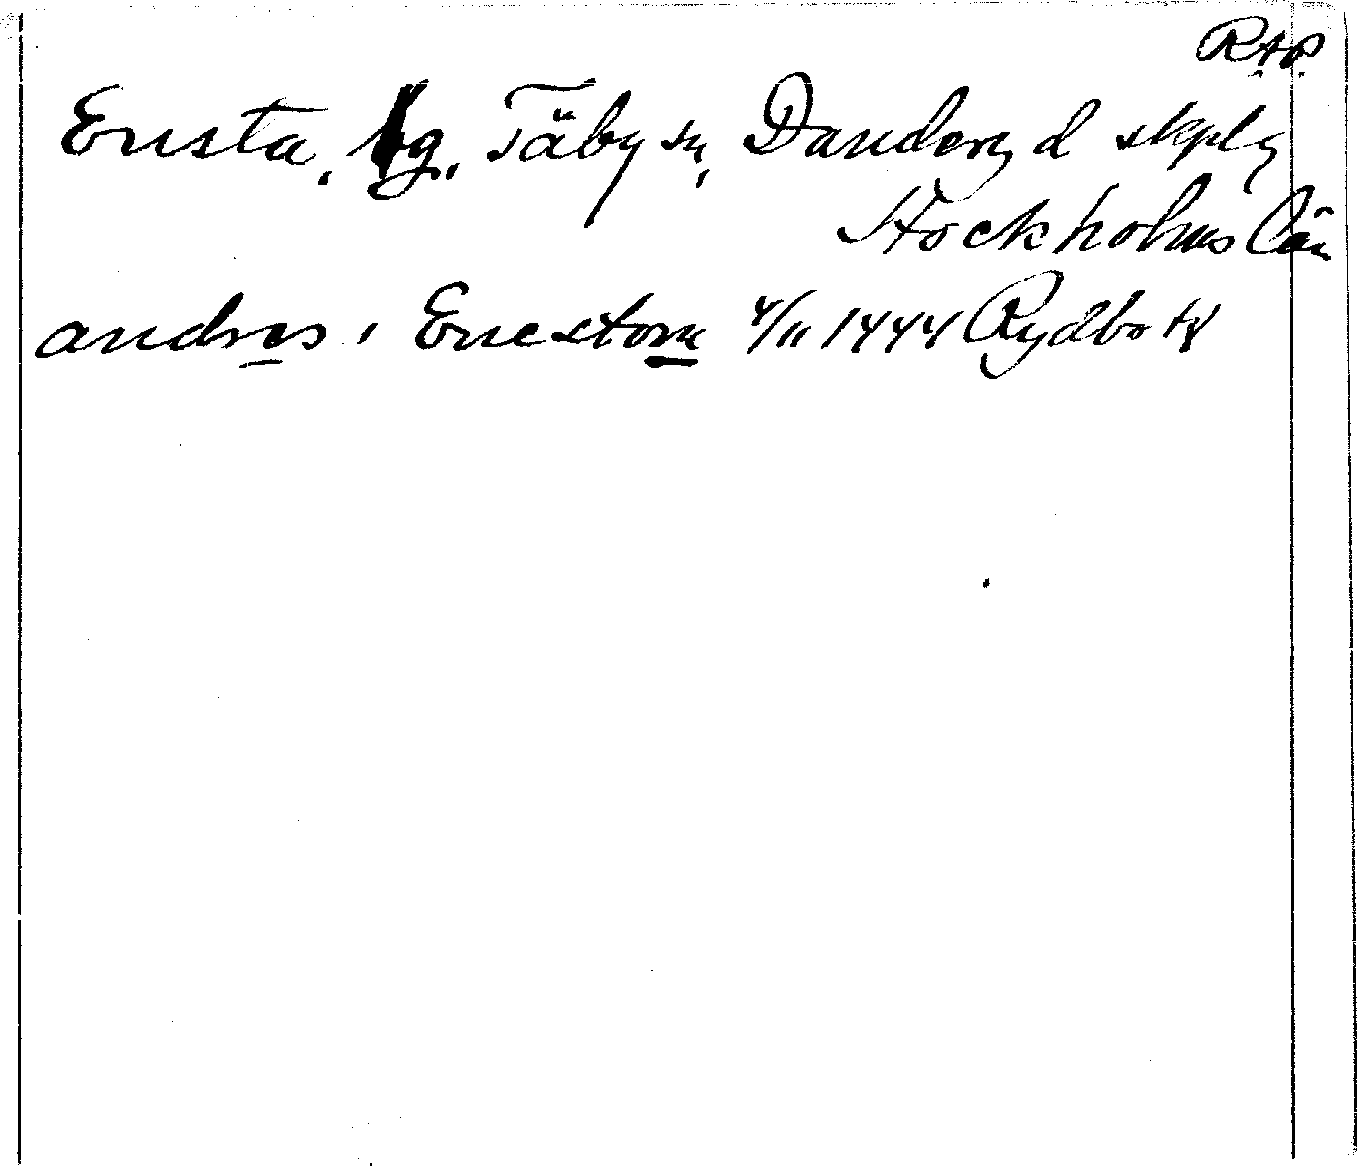 RAP.
Ensta, by, Täby sn, Danderyd skplg
Stockholms län
andres i Enestom 4/11 1444 Rydbo